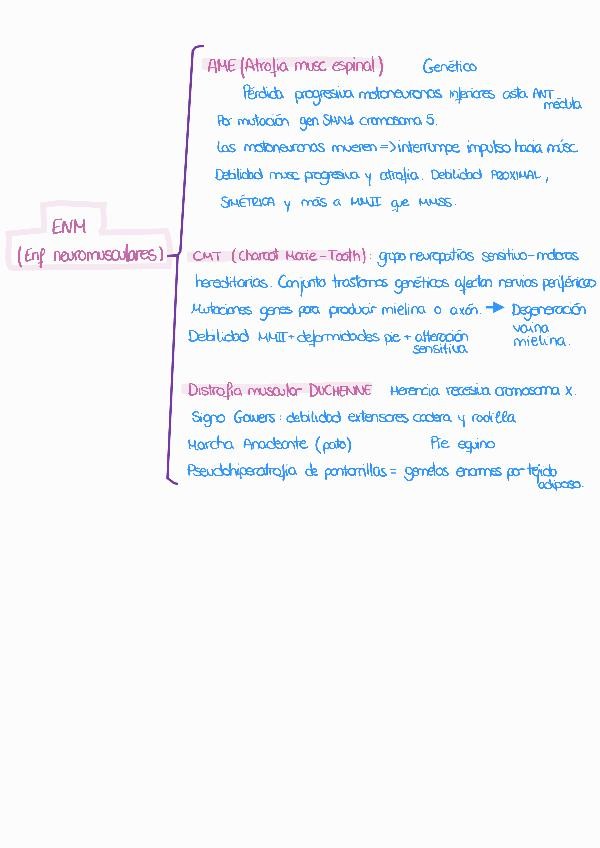 ENM
(Enf neuromusculares)
AME (Atrofia musc espinal) Genético
Pérdida progresiva motoneuronas inferiores asta ANT
médula
Por mutación gen SMN1 cromosoma 5.
Las motoneuronas mueren => interrumpe impulso hacia músc
Debilidad musc progresiva y atrofia. Debilidad PROXIMAL,
SIMÉTRICA y más a MMII que MMSS.
CMT (Charcot Marie-Tooth): grupo neuropatías sensitivo-motoras
hereditarias. Conjunto trastornos genéticos afectan nervios periféricos
Mutaciones genes para producir mielina o axón. → Degeneración
vaina
mielina.
Debilidad MMII + deformidades pie + alteración
sensitiva
Distrofia muscular DUCHENNE Herencia recesiva cromosoma X.
Signo Gowers: debilidad extensores cadera y rodilla
Marcha Anadeante (pato) Pie equino
Pseudohiperatrofia de pantorrillas = gemelos enormes por tejido
adiposo.